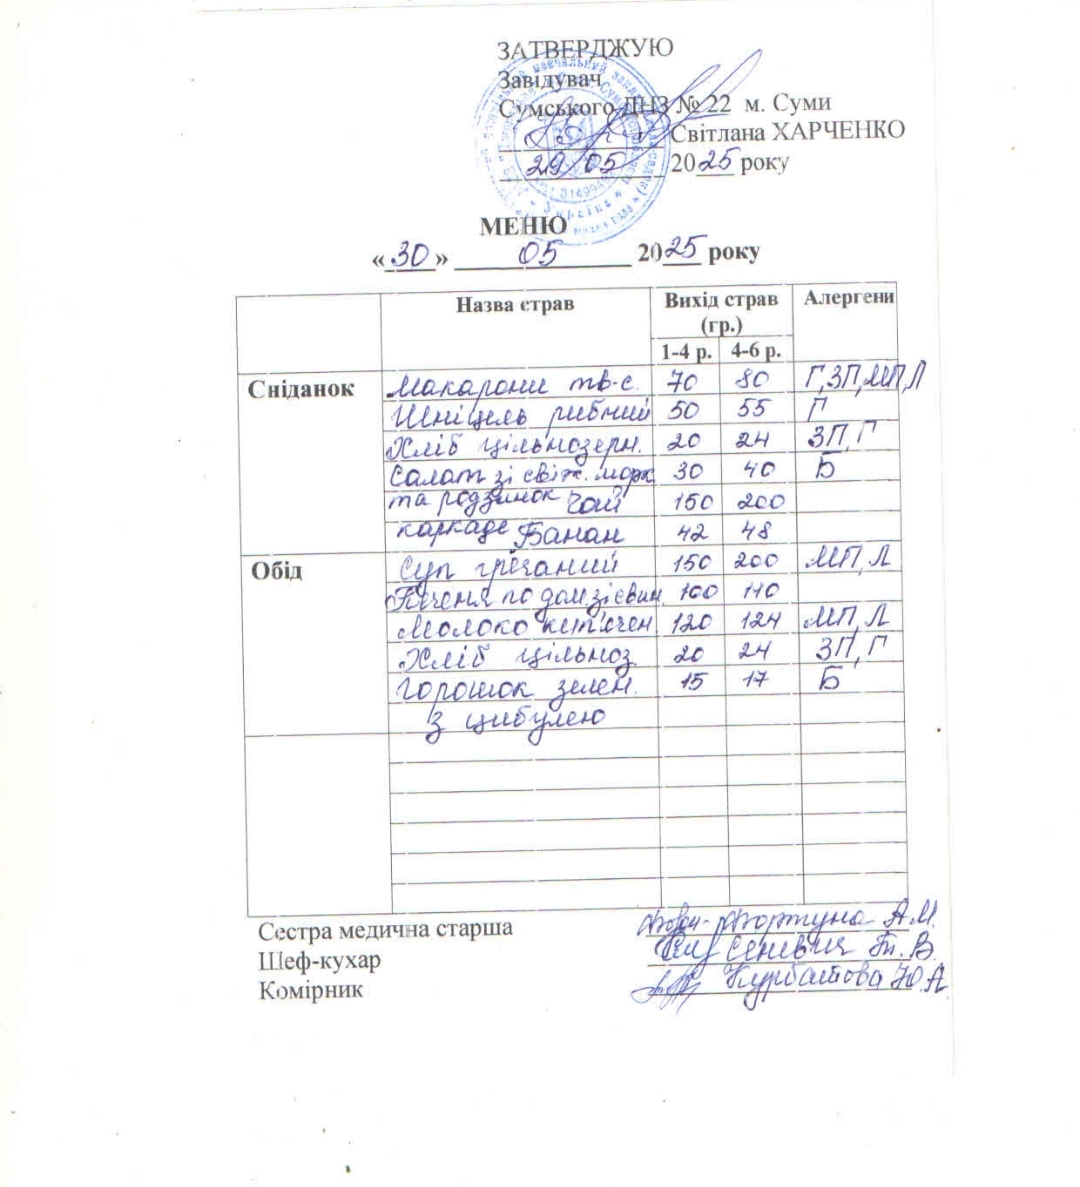 ЗАТВЕРДЖУЮ
Завідувач
Сумського ДНЗ № 22 м. Суми
Світлана ХАРЧЕНКО
29 05 2025 року
МЕНЮ
« 30 » 05 2025 року
Назва страв Вихід страв (гр.) Алергени
1-4 р. 4-6 р.
Сніданок Макарони тв-с. 70 80 Г,ЗП,МП,Л
Шніцель рибний 50 55 Г
Хліб цільнозерн. 20 24 ЗП,Г
Салат зі свіж. морк 30 40 Б
та родзинок Чай 150 200
каркаде Банан 42 48
Обід Суп гречаний 150 200 МП,Л
Печеня по дом зі свин. 100 110
Молоко кип'ячен 120 124 МП,Л
Хліб цільноз. 20 24 ЗП,Г
Горошок зелен. 15 17 Б
з цибулею
Сестра медична старша Фортуна А.М.
Шеф-кухар Сеневич Т.В.
Комірник Курбатова Ю.А